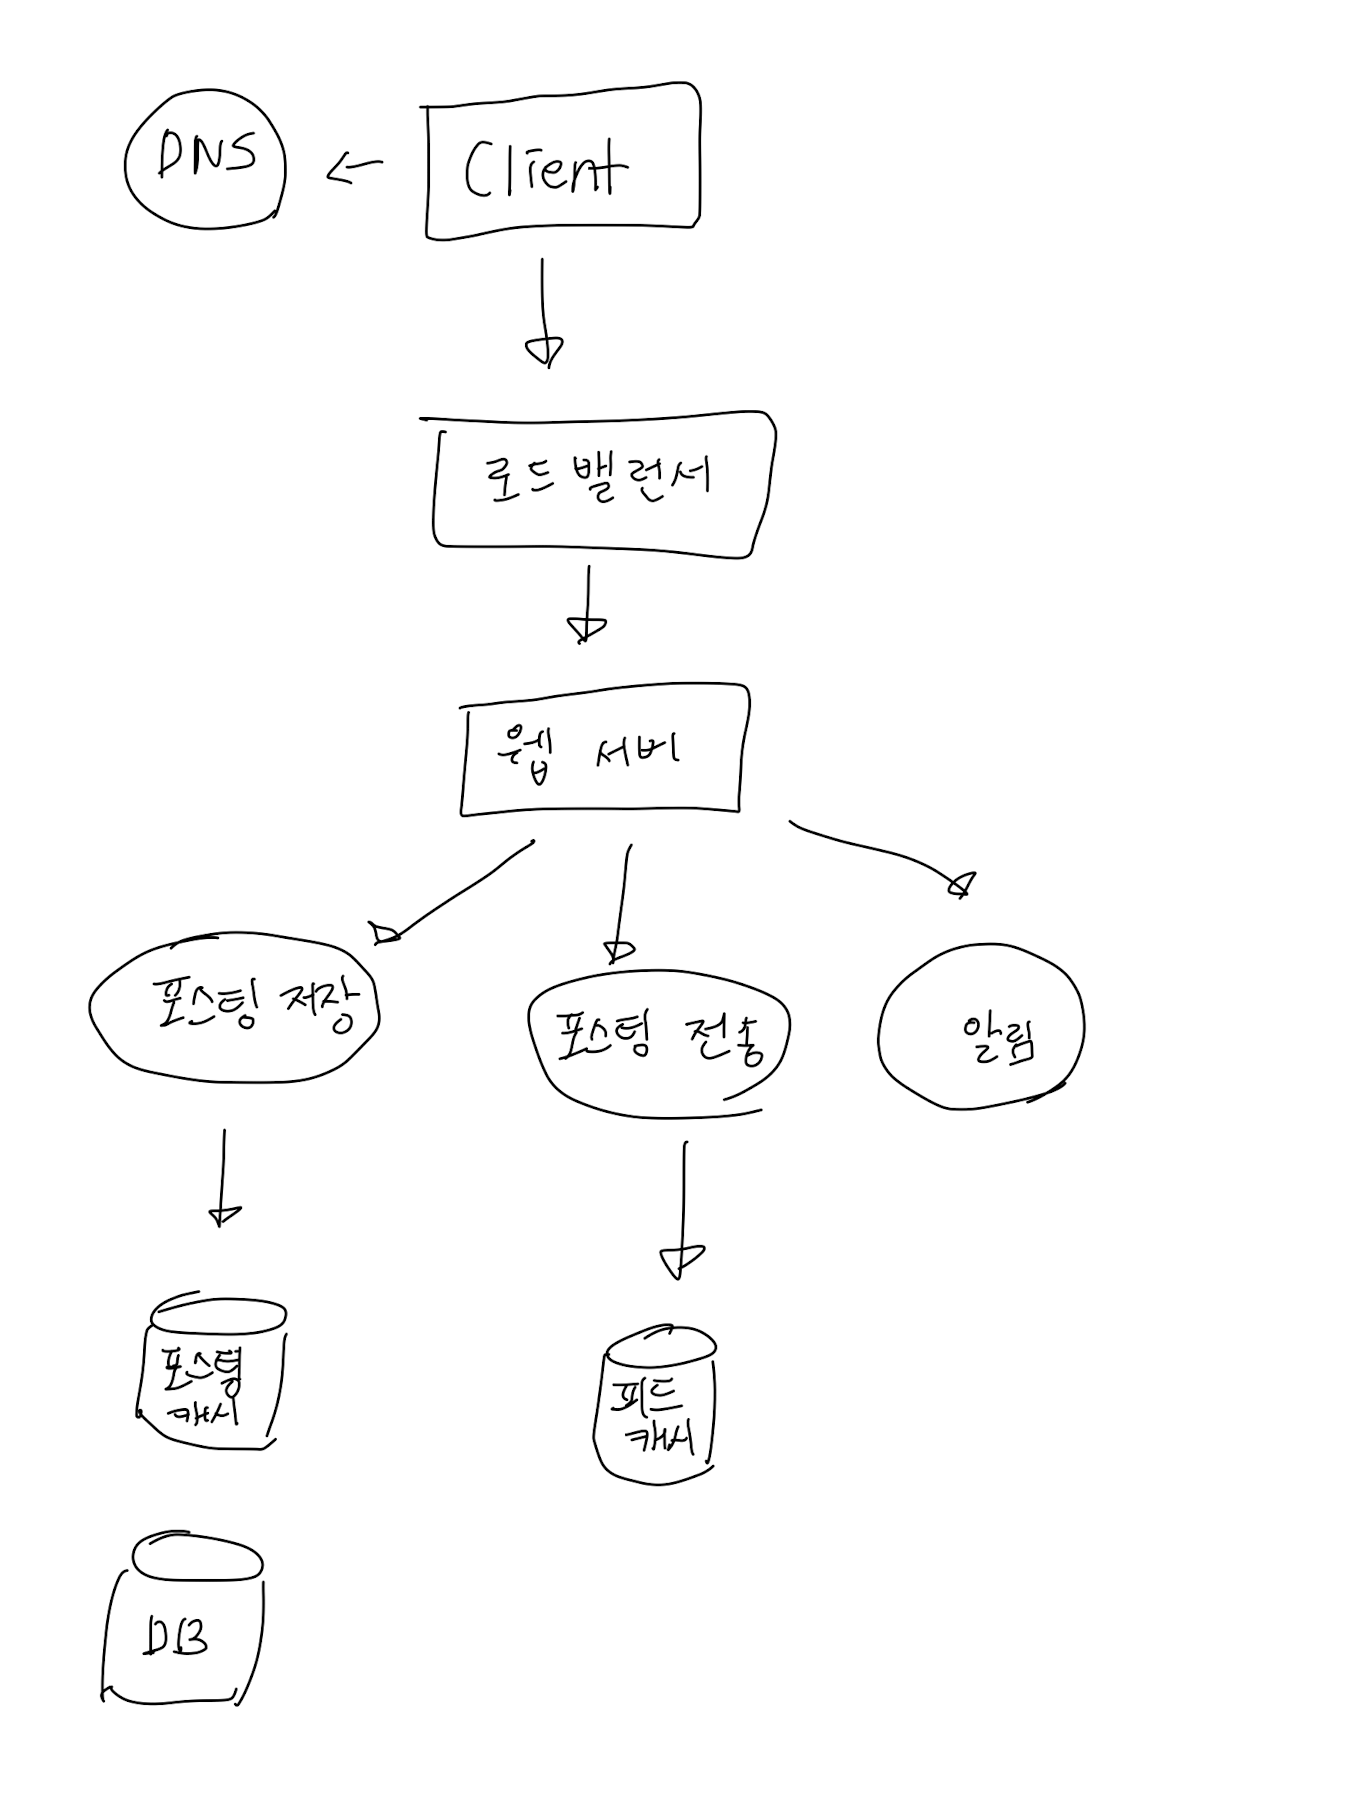 DNS
Client
로드밸런서
웹 서버
포스팅 저장
포스팅 전송
알림
포스팅
캐시
피드
캐시
DB